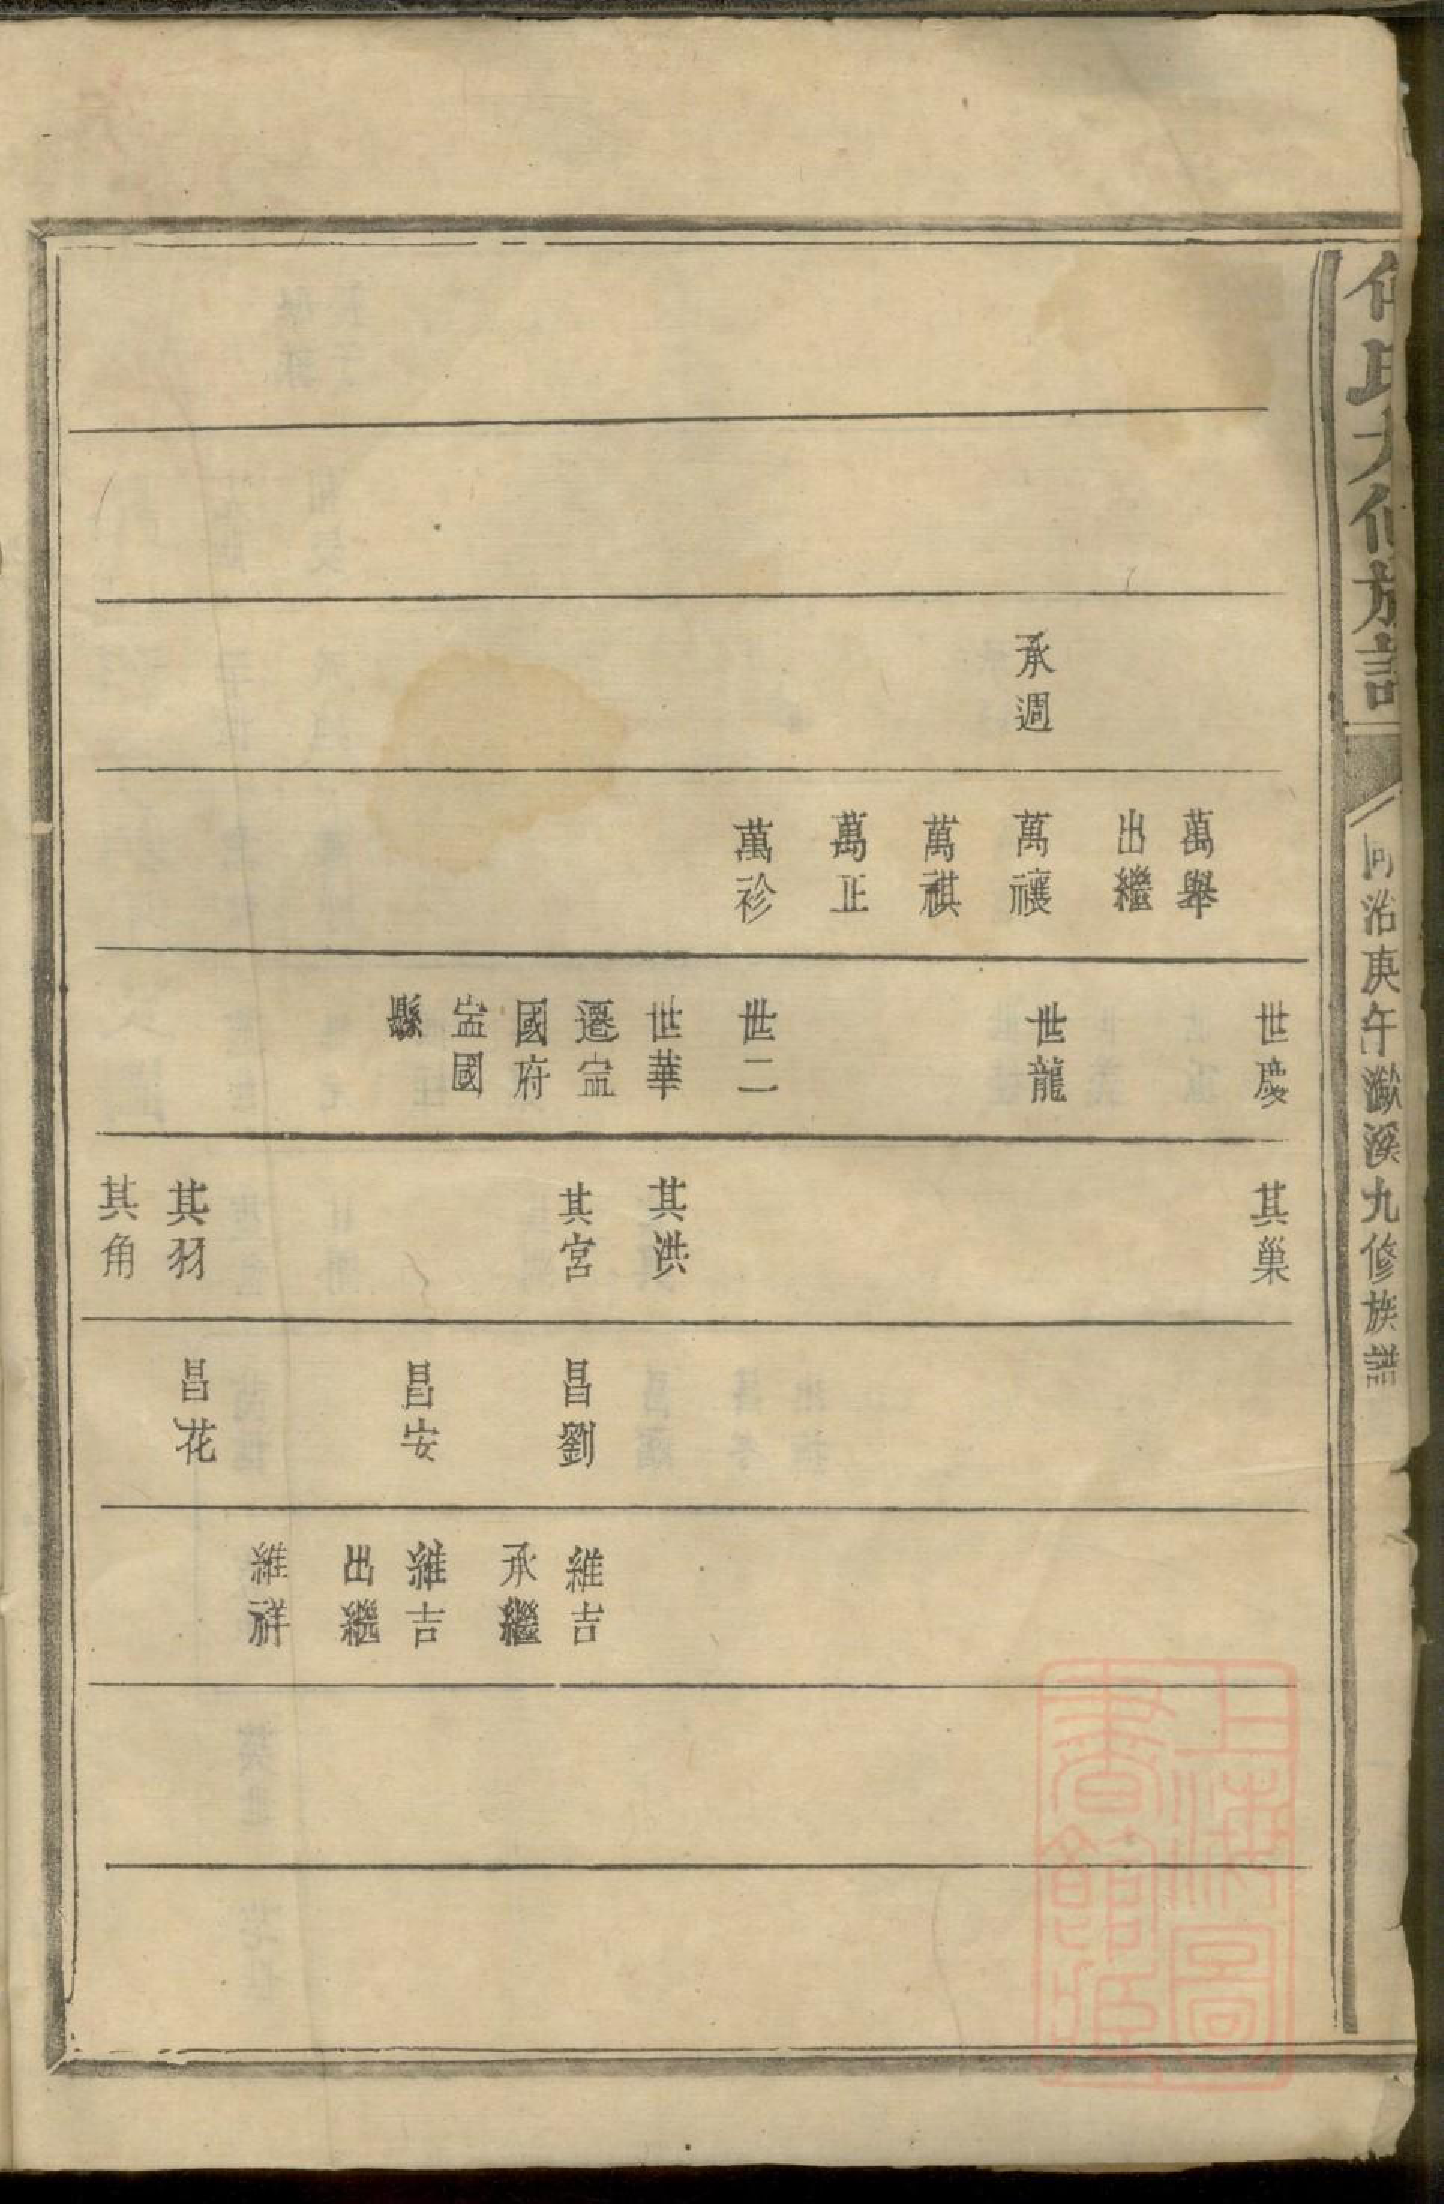 何氏大修族譜
同治庚午瀫溪九修族譜
承週
萬舉
出繼
萬禳
萬祺
萬正
萬袗
世慶
世龍
世二
世華
遷寍
國府
寍國
縣
其巢
其洪
其宮
其羽
其角
昌劉
昌安
昌花
維吉
承繼
維吉
出繼
維祥
上海圖
書館藏